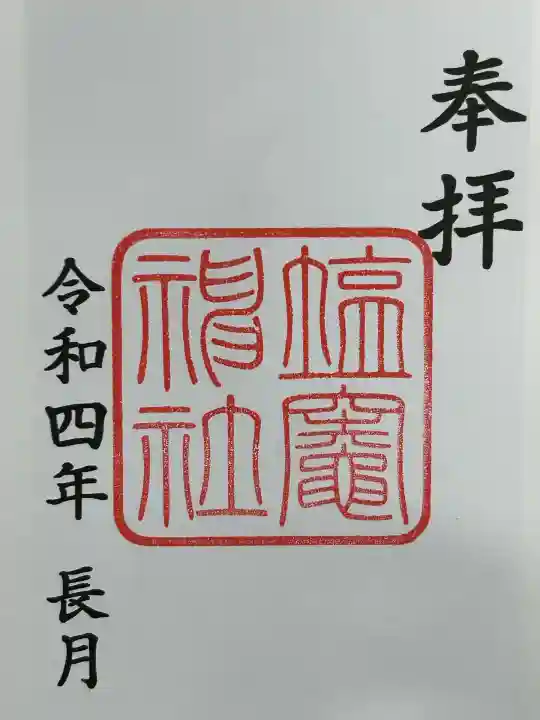 奉拝
塩竈
神社
令和四年 長月